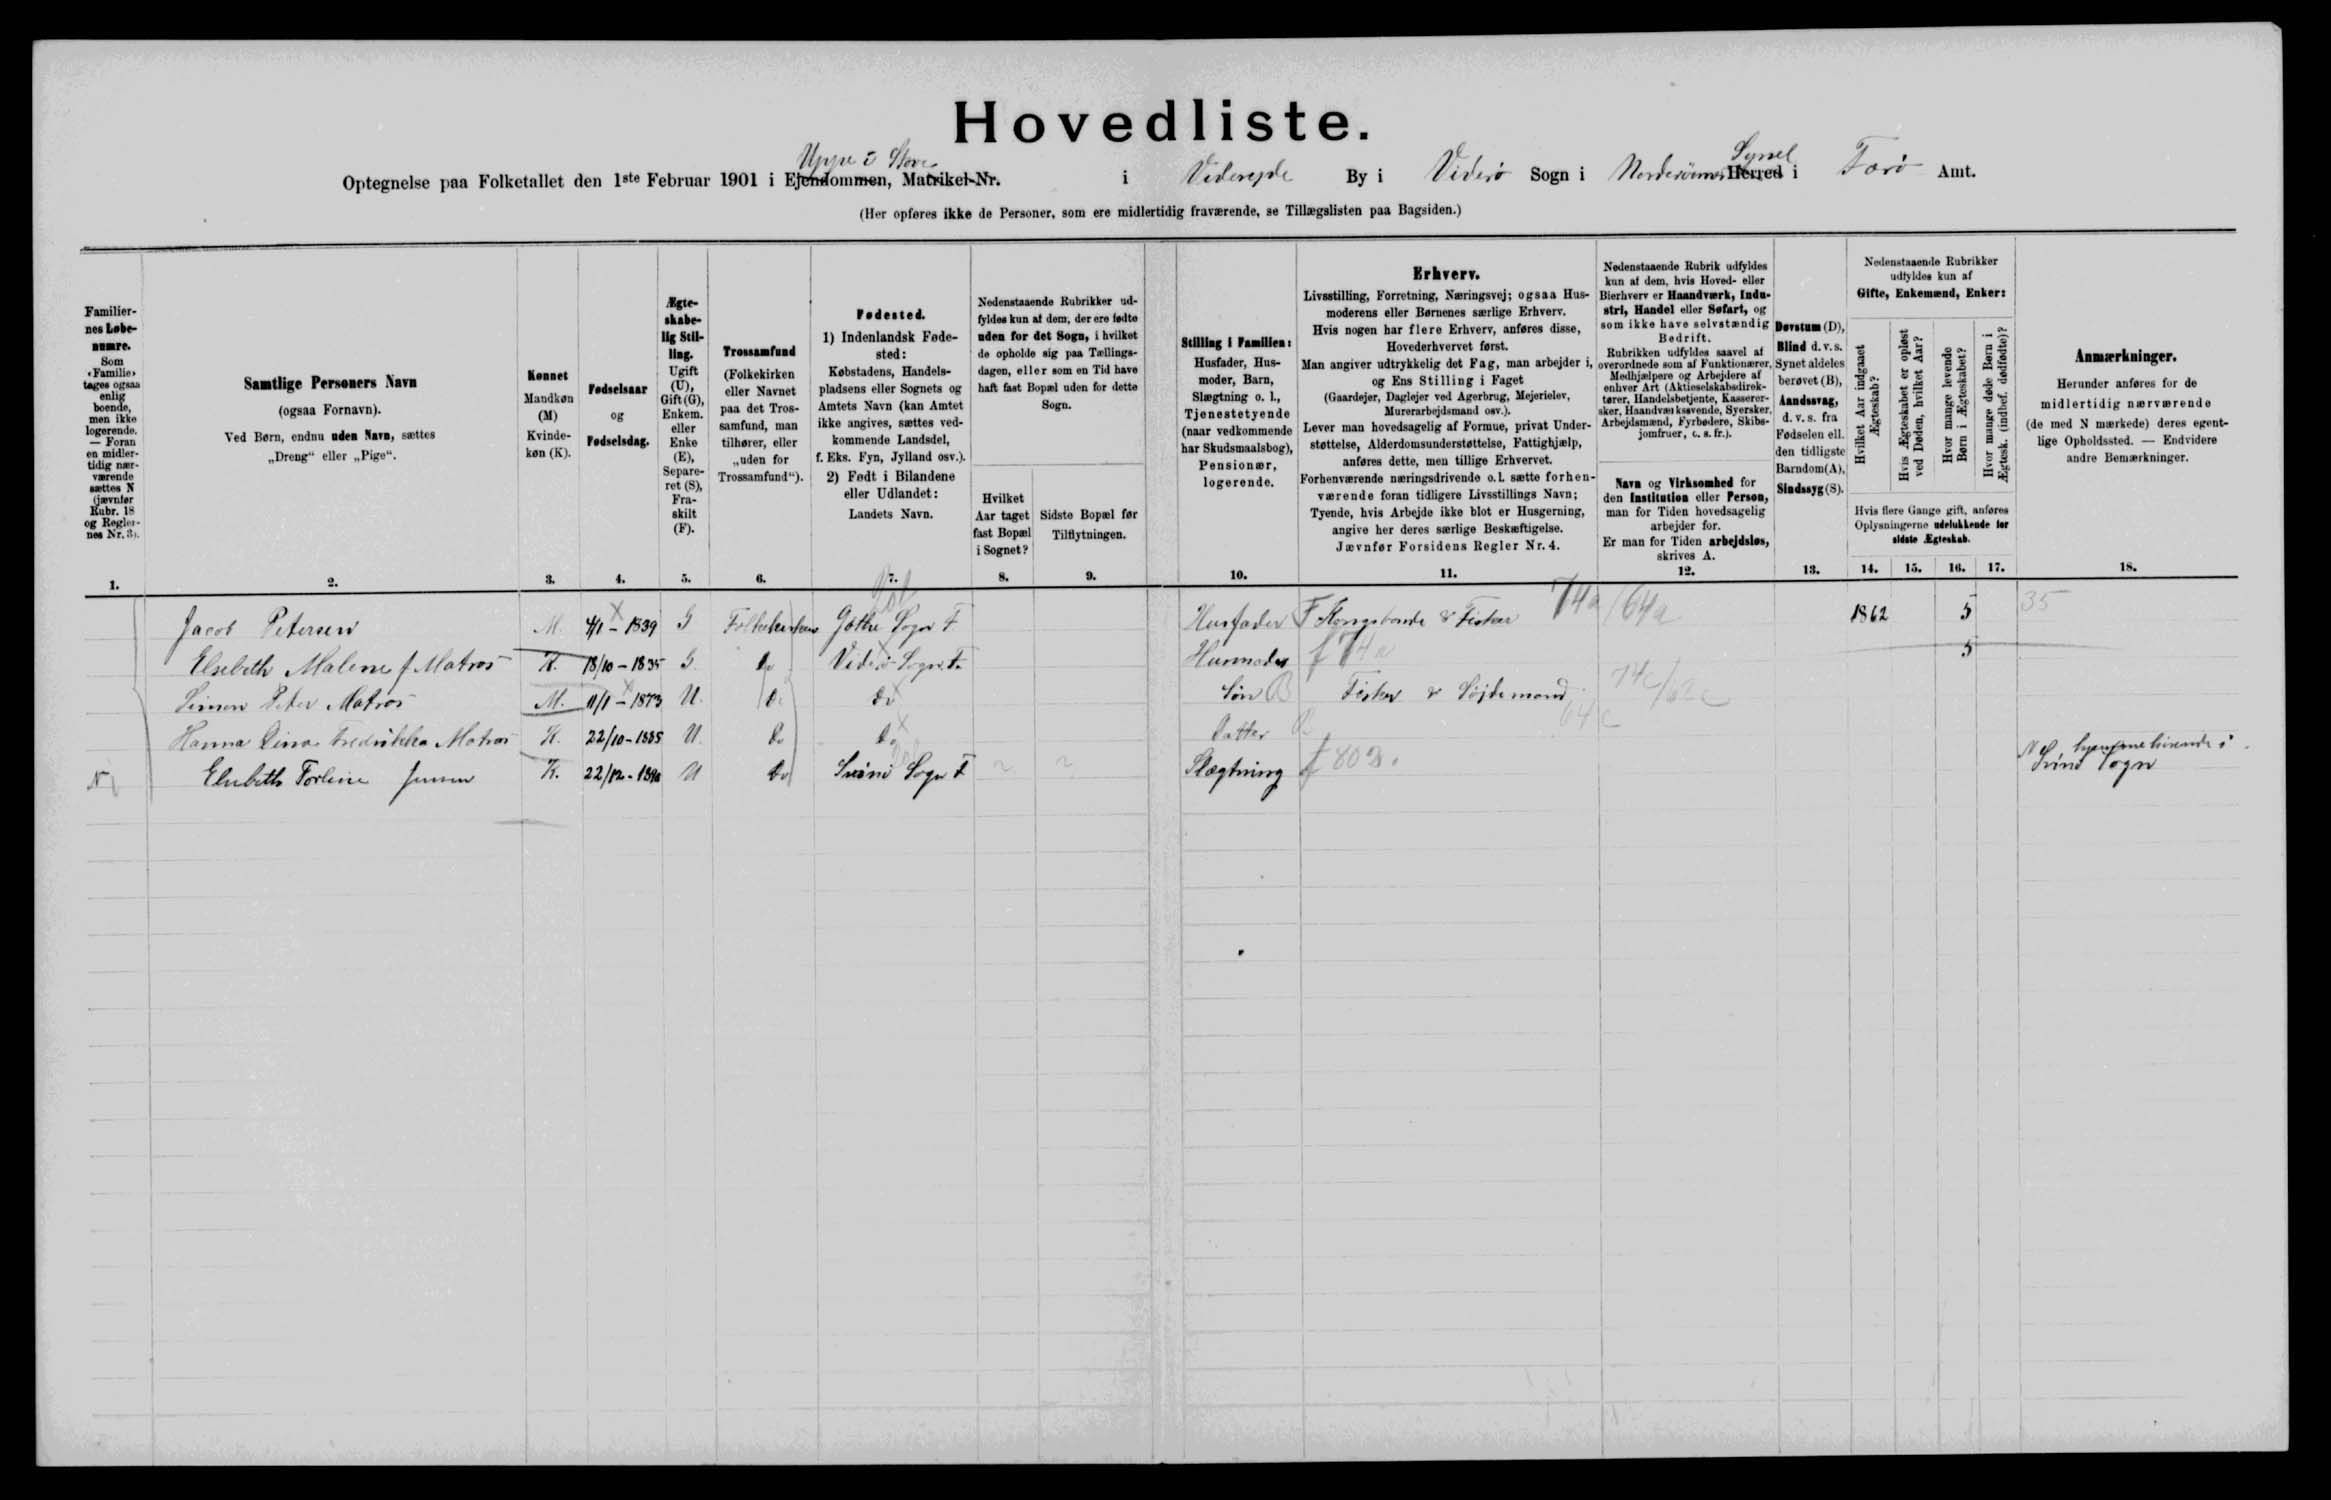 Hovedliste.
Uppe i Stove Syssel
Optegnelse paa Folketallet den 1ste Februar 1901 i Ejendommen, Matrikel-Nr. i Viderejde By i Viderø Sogn i Norderøernes Herred i Færø Amt.
(Her opføres ikke de Personer, som ere midlertidig fraværende, se Tillægslisten paa Bagsiden.)
Familiernes Løbenumre.
Som «Familie» tages ogsaa enlig boende, men ikke logerende. — Foran en midlertidig nærværende sættes N (jævnfør Rubr. 18 og Reglernes Nr. 3).
1.
Samtlige Personers Navn
(ogsaa Fornavn).
Ved Børn, endnu uden Navn, sættes
„Dreng“ eller „Pige“.
2.
Kønnet
Mandkøn (M)
Kvindekøn (K).
3.
Fødselsaar
og
Fødselsdag.
4.
Ægteskabelig Stilling.
Ugift (U), Gift (G), Enkem. eller Enke (E), Separeret (S), Fraskilt (F).
5.
Trossamfund
(Folkekirken eller Navnet paa det Trossamfund, man tilhører, eller „uden for Trossamfund“).
6.
Fødested.
1) Indenlandsk Fødested:
Købstadens, Handelspladsens eller Sognets og Amtets Navn (kan Amtet ikke angives, sættes vedkommende Landsdel, f. Eks. Fyn, Jylland osv.).
2) Født i Bilandene eller Udlandet:
Landets Navn.
7.
Nedenstaaende Rubrikker udfyldes kun af dem, der ere fødte uden for det Sogn, i hvilket de opholde sig paa Tællingsdagen, eller som en Tid have haft fast Bopæl uden for dette Sogn.
Hvilket Aar taget fast Bopæl i Sognet?
8.
Sidste Bopæl før Tilflytningen.
9.
Stilling i Familien:
Husfader, Husmoder, Barn, Slægtning o. l., Tjenestetyende (naar vedkommende har Skudsmaalsbog), Pensionær, logerende.
10.
Erhverv.
Livsstilling, Forretning, Næringsvej; ogsaa Husmoderens eller Børnenes særlige Erhverv.
Hvis nogen har flere Erhverv, anføres disse, Hovederhvervet først.
Man angiver udtrykkelig det Fag, man arbejder i, og Ens Stilling i Faget
(Gaardejer, Daglejer ved Agerbrug, Mejerielev, Murerarbejdsmand osv.).
Lever man hovedsagelig af Formue, privat Understøttelse, Alderdomsunderstøttelse, Fattighjælp, anføres dette, men tillige Erhvervet.
Forhenværende næringsdrivende o. l. sætte forhenværende foran tidligere Livsstillings Navn;
Tyende, hvis Arbejde ikke blot er Husgerning, angive her deres særlige Beskæftigelse.
Jævnfør Forsidens Regler Nr. 4.
11.
Nedenstaaende Rubrik udfyldes kun af dem, hvis Hoved- eller Bierhverv er Haandværk, Industri, Handel eller Søfart, og som ikke have selvstændig Bedrift.
Rubrikken udfyldes saavel af overordnede som af Funktionærer, Medhjælpere og Arbejdere af enhver Art (Aktieselskabsdirektører, Handelsbetjente, Kasserersker, Haandværkssvende, Syersker, Arbejdsmænd, Fyrbødere, Skibsjomfruer, o. s. fr.).
Navn og Virksomhed for den Institution eller Person, man for Tiden hovedsagelig arbejder for.
Er man for Tiden arbejdsløs, skrives A.
12.
Døvstum (D), Blind d. v. s. Synet aldeles berøvet (B), Aandssvag, d. v. s. fra Fødselen ell. den tidligste Barndom (A), Sindssyg (S).
13.
Nedenstaaende Rubrikker udfyldes kun af
Gifte, Enkemænd, Enker:
Hvilket Aar indgaaet Ægteskab?
Hvis Ægteskabet er opløst ved Døden, hvilket Aar?
Hvor mange levende Børn i Ægteskabet?
Hvor mange døde Børn i Ægtesk. (indbef. dødfødte)?
Hvis flere Gange gift, anføres Oplysningerne udelukkende for sidste Ægteskab.
14. 15. 16. 17.
Anmærkninger.
Herunder anføres for de midlertidig nærværende (de med N mærkede) deres egentlige Opholdssted. — Endvidere andre Bemærkninger.
18.
Jacob Petersen M. 4/1 - 1839 G Folkekirken Gøthe Sogn F. Husfader F Kongsbonde & Fisker 74a/64a 1862 5 35
Elsebeth Malene f. Matras K. 18/10 - 1835 G. Do Viderø Sogn F. Husmoder f 74a 5
Simon Peter Matras M. 11/1 - 1873 U. Do Do Søn B Fisker & Søjdemand 74c/62c
Hanna Dina Fredrikka Matras K. 22/10 - 1885 U. Do Do Datter B 64c
N Elsebeth Torline Jensen K. 22/12 - 1890 U Do Svino Sogn F ~ ~ Slægtning f 803. N hjemmehørende i Svinø Sogn